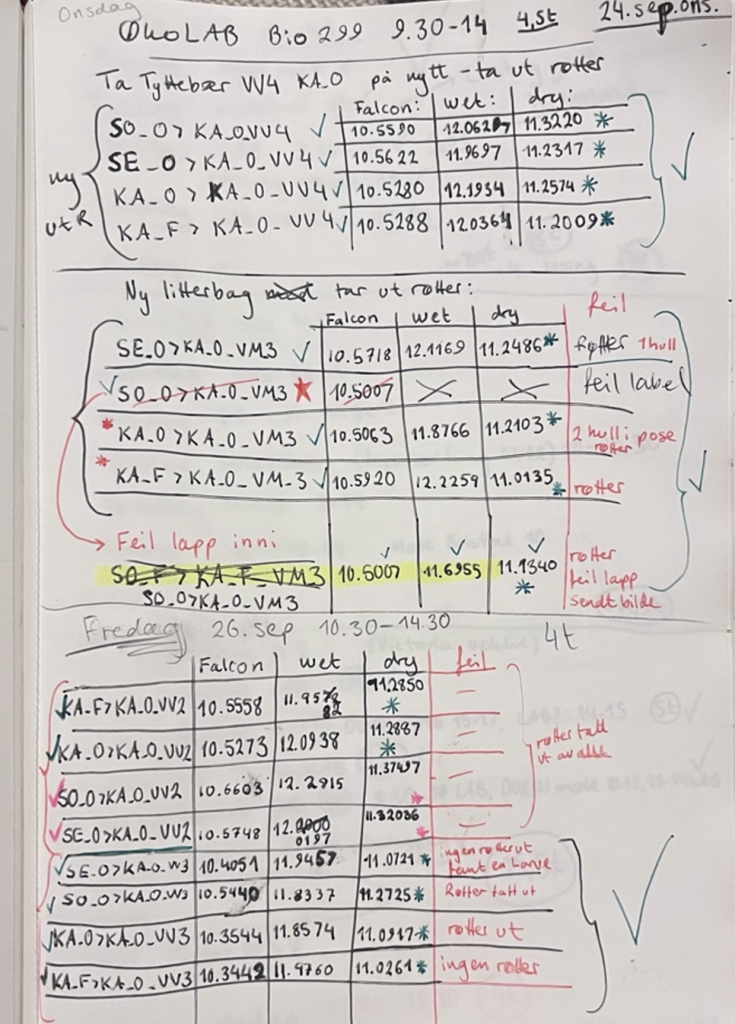 Onsdag
ØkoLAB Bio 299 9.30-14 4,5t 24.sep.ons.
Ta Tyttebær VV4 KA_O på nytt - ta ut røtter
Falcon: wet: dry:
SO_O>KA_O_VV4 ✓ 10.5590 12.0627 11.3220 *
SE_O>KA_O_VV4 ✓ 10.5622 11.9697 11.2317 *
ny
KA_O>KA_O_VV4 ✓ 10.5280 12.1934 11.2574 *
ut R
KA_F>KA_O_VV4 ✓ 10.5288 12.0364 11.2009 *
Ny litterbag tar ut røtter:
Falcon wet dry feil
SE_O>KA_O_VM3 ✓ 10.5718 12.1169 11.2486 * Røtter 1 hull
✓ SO_O>KA_O_VM3 ★ 10.5007 X X feil label
* KA_O>KA_O_VM3 ✓ 10.5063 11.8766 11.2103 * 2 hull i pose røtter
* KA_F>KA_O_VM-3 ✓ 10.5920 12.2259 11.0135 * røtter
→ Feil lapp inni
SO_F>KA_F_VM3 10.5007 ✓ 11.6955 ✓ 11.1340 ✓ * røtter
feil lapp
SO_O>KA_O_VM3 sendt bilde
Fredag 26.sep 10.30-14.30 4t
Falcon wet dry feil
✓ KA_F>KA_O_VV2 10.5558 11.9582 11.2850 * -
✓ KA_O>KA_O_VV2 10.5273 12.0938 11.2887 * -
røtter tatt
ut av alle
✓ SO_O>KA_O_VV2 10.6603 12.2915 11.37497 * -
✓ SE_O>KA_O_VV2 10.5748 12.0197 11.32036 * -
✓ SE_O>KA_O_VV3 10.4051 11.9457 11.0721 * ingen røtter ut
fant en larve
✓ SO_O>KA_O_VV3 10.5440 11.8337 11.2725 * Røtter tatt ut
✓ KA_O>KA_O_VV3 10.3544 11.8574 11.0917 * røtter ut
✓ KA_F>KA_O_VV3 10.3442 11.9760 11.0261 * ingen røtter